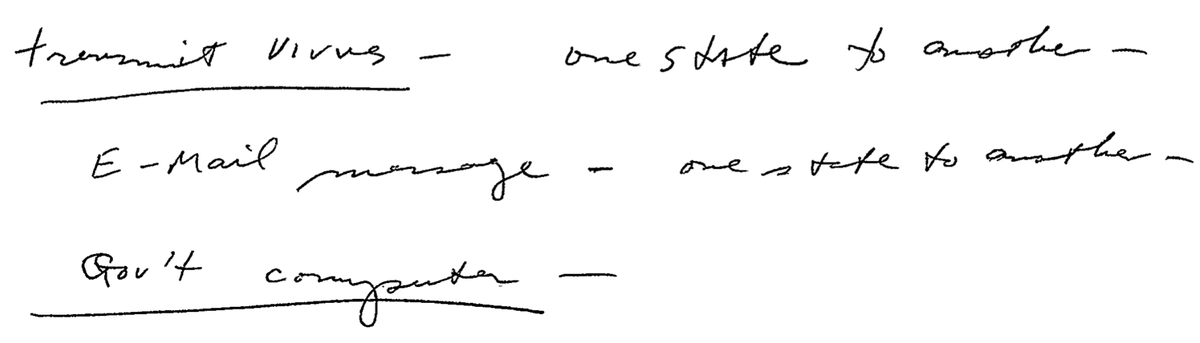 transmit virus - one state to another -
E-Mail message - one state to another -
Gov't computer -